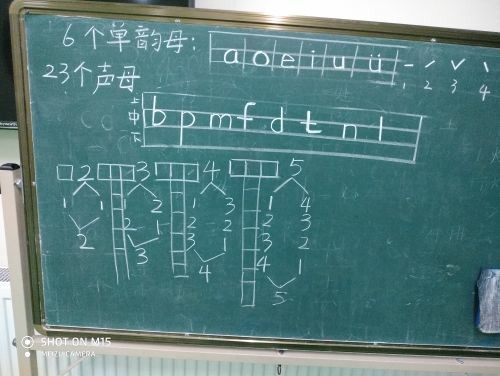 6个单韵母: a o e i u ü
1 2 3 4
23个声母 上中下 b p m f d t n l
2 3 4 5
1 1 1 2 1 3 1 4
2 1 2 2 2 3
2 3 3 1 3 2
4 4 1
5
SHOT ON M15
MEIZU CAMERA